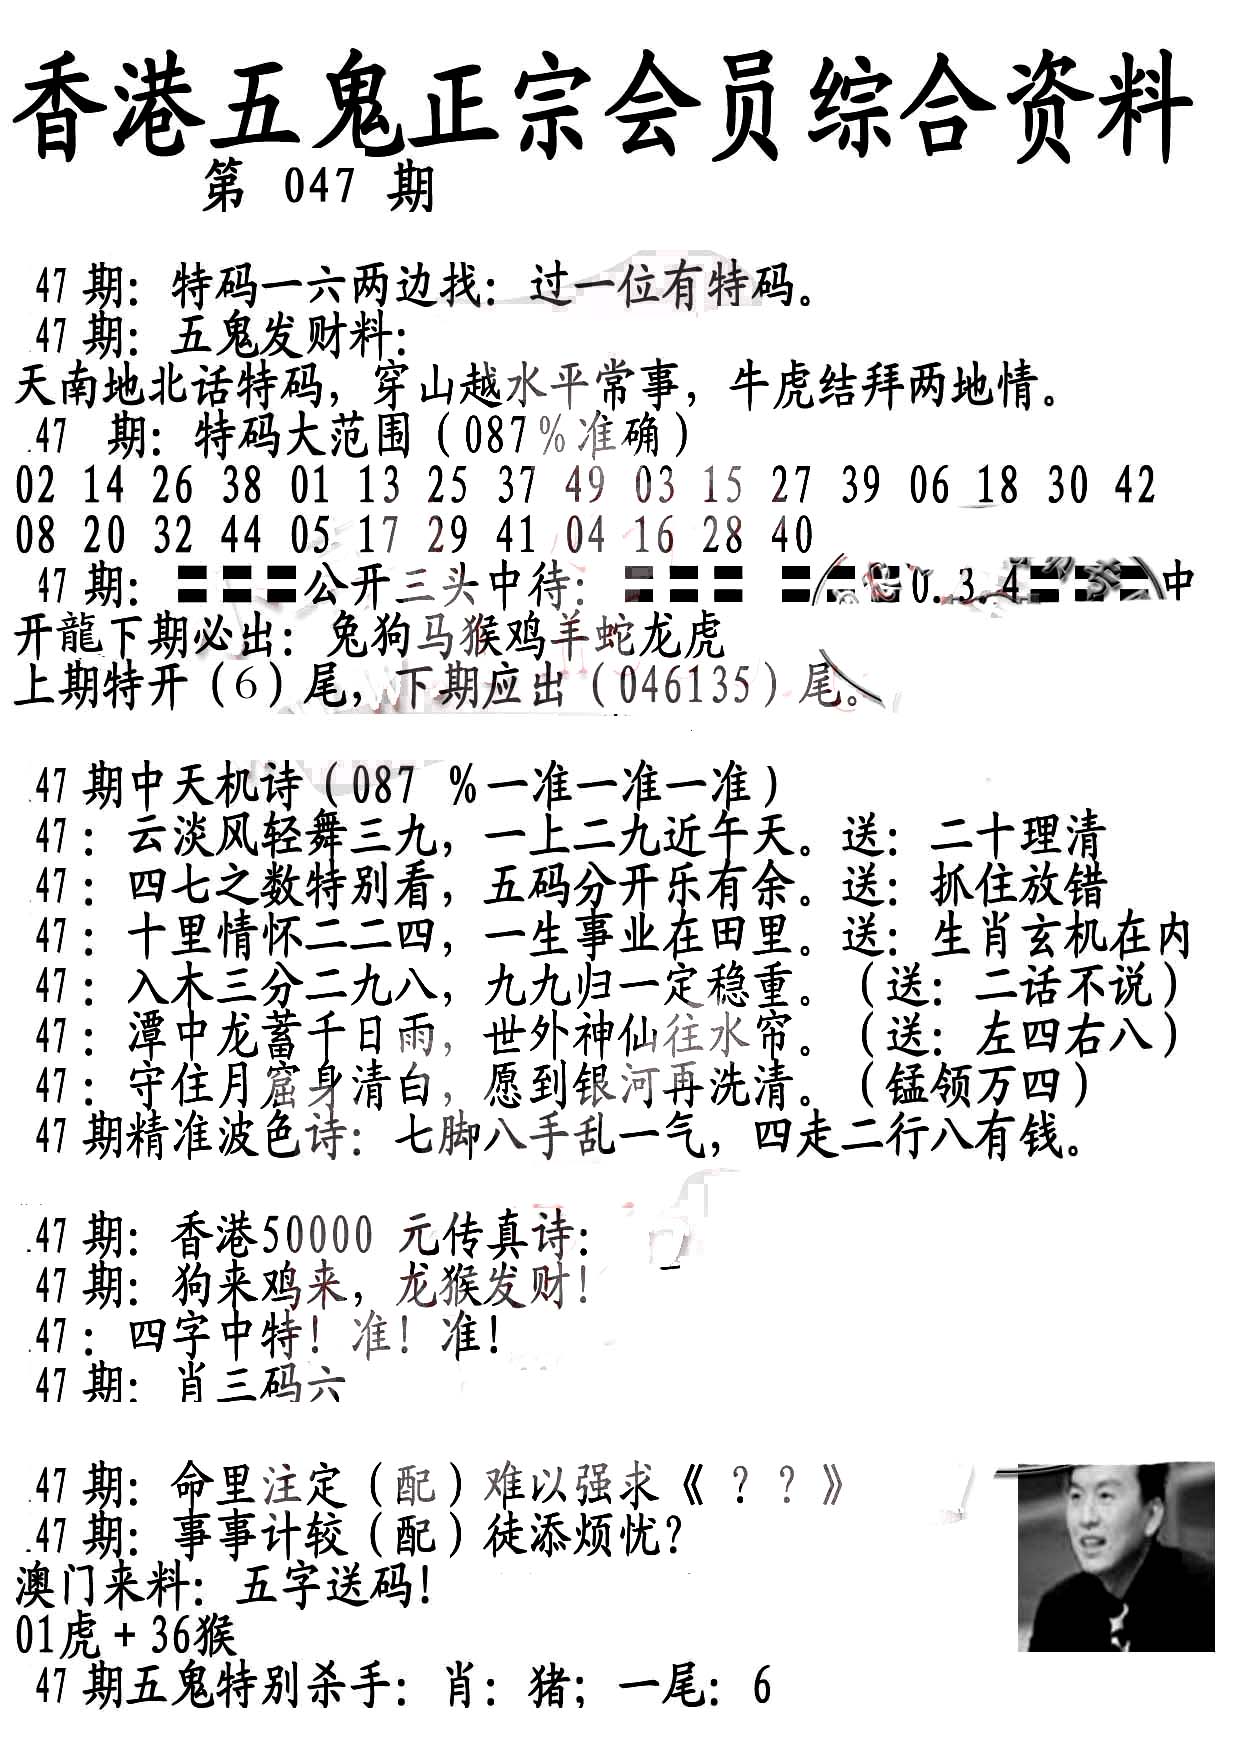 香港五鬼正宗会员综合资料
第 047 期
47 期：特码一六两边找：过一位有特码。
47 期：五鬼发财料：
天南地北话特码，穿山越水平常事，牛虎结拜两地情。
47 期：特码大范围（087%准确）
02 14 26 38 01 13 25 37 49 03 15 27 39 06 18 30 42
08 20 32 44 05 17 29 41 04 16 28 40
47 期：〓〓〓公开三头中待：〓〓〓 〓〓〓0.3.4〓〓〓中
开龍下期必出：兔狗马猴鸡羊蛇龙虎
上期特开（6）尾，下期应出（046135）尾。
47 期中天机诗（087 %一准一准一准）
47：云淡风轻舞三九，一上二九近午天。送：二十理清
47：四七之数特别看，五码分开乐有余。送：抓住放错
47：十里情怀二二四，一生事业在田里。送：生肖玄机在内
47：入木三分二九八，九九归一定稳重。（送：二话不说）
47：潭中龙蓄千日雨，世外神仙往水帘。（送：左四右八）
47：守住月窟身清白，愿到银河再洗清。（锰领万四）
47 期精准波色诗：七脚八手乱一气，四走二行八有钱。
47 期：香港50000 元传真诗：
47 期：狗来鸡来，龙猴发财！
47：四字中特！准！准！
47 期：肖三码六
47 期：命里注定（配）难以强求《？？》
47 期：事事计较（配）徒添烦忧？
澳门来料：五字送码！
01虎+36猴
47 期五鬼特别杀手：肖：猪；一尾：6